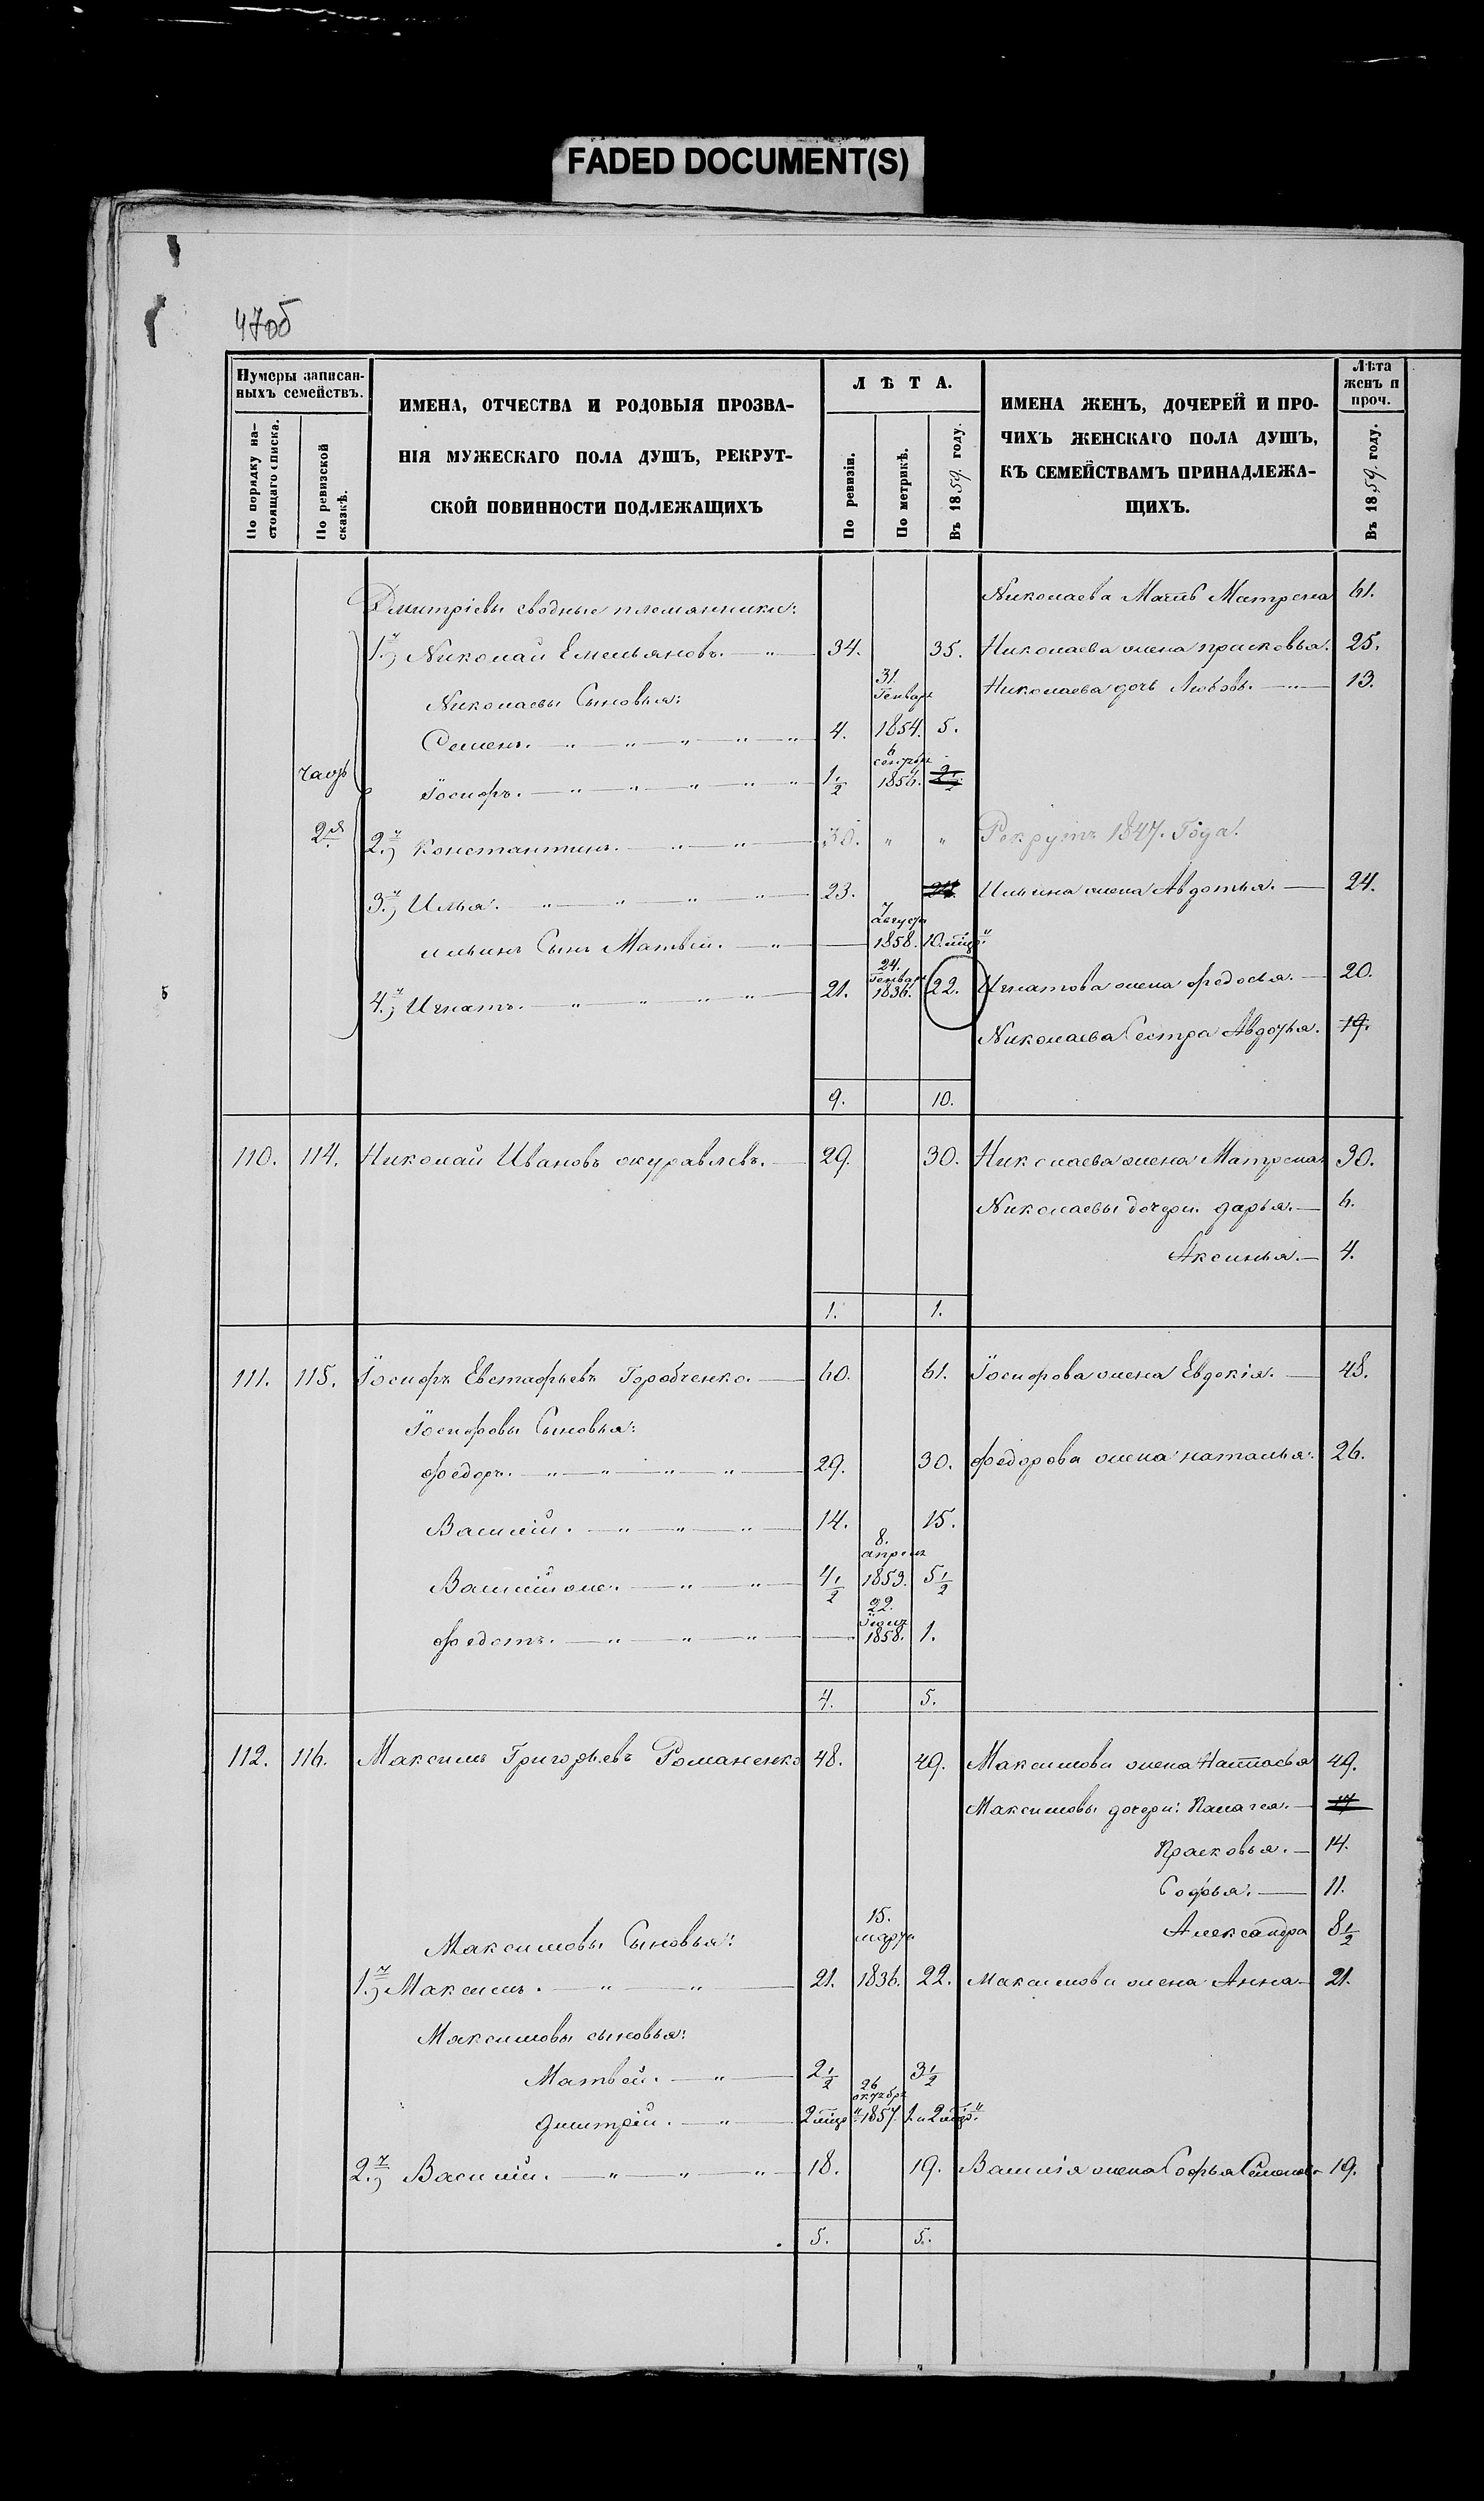 FADED DOCUMENT(S)
47об
Нумеры записан-
ныхъ семействъ.
По порядку на-
стоящаго списка.
По ревизской
сказкѣ.
ИМЕНА, ОТЧЕСТВА И РОДОВЫЯ ПРОЗВА-
НІЯ МУЖЕСКАГО ПОЛА ДУШЪ, РЕКРУТ-
СКОЙ ПОВИННОСТИ ПОДЛЕЖАЩИХЪ
ЛѢТА.
По ревизіи.
По метрикѣ.
Въ 1859. году.
ИМЕНА ЖЕНЪ, ДОЧЕРЕЙ И ПРО-
ЧИХЪ ЖЕНСКАГО ПОЛА ДУШЪ,
КЪ СЕМЕЙСТВАМЪ ПРИНАДЛЕЖА-
ЩИХЪ.
Лѣта
женъ и
проч.
Въ 1859. году.
Дмитріевы сводные племянники: Николаева Мать Матрена 61.
1.й) Николай Емельяновъ. 34. 35. Николаева жена прасковья. 25.
Николаевы Сыновья: 31. Генваря Николаева дочь Любовь. 13.
Семенъ. 4. 1854. 5.
часть Іосифъ. 1 1/2 6 сентября 1856. 2 1/2
2я 2.й) Константинъ. 30. " " Рекрутъ 1847. Года.
3.й) Илья. 23. 24. Ильина жена Авдотья. 24.
ильинъ Сынъ Матвей. — 7 Августа 1858. 10. мѣц.
4.й) Игнатъ. 21. 24. Генваря 1836. 22. Игнатова жена федосья. 20.
Николаева Сестра Авдотья. 19.
9. 10.
110. 114. Николай Ивановъ журавлевъ. 29. 30. Николаева жена Матрена. 30.
Николаевы дочери. дарья. 6.
Аксинья. 4.
1. 1.
111. 115. Іосифъ Евстафьевъ Горобченко. 60. 61. Іосифова жена Евдокія. 48.
Іосифовы Сыновья:
федоръ. 29. 30. федорова жена наталья. 26.
Василій. 14. 15.
Василійже. 4 1/2 8. апреля 1853. 5 1/2
федотъ. — 22. Іюня 1858. 1.
4. 5.
112. 116. Максимъ Григорьевъ Романенко 48. 49. Максимова жена Настасья 49.
Максимовы дочери: Палагея. 17
Прасковья. 14.
Софья. 11.
Максимовы Сыновья: 15. марта Александра 8 1/2
1.й) Максимъ. 21. 1836. 22. Максимова жена Анна 21.
Максимовы сыновья:
Матвей. 2 1/2 3 1/2
дмитрій. 2 мѣц. 26 октября 1857. 1. и 2 мѣц.
2.й) Василій. 18. 19. Василія жена Софья Семенова 19.
5. 5.